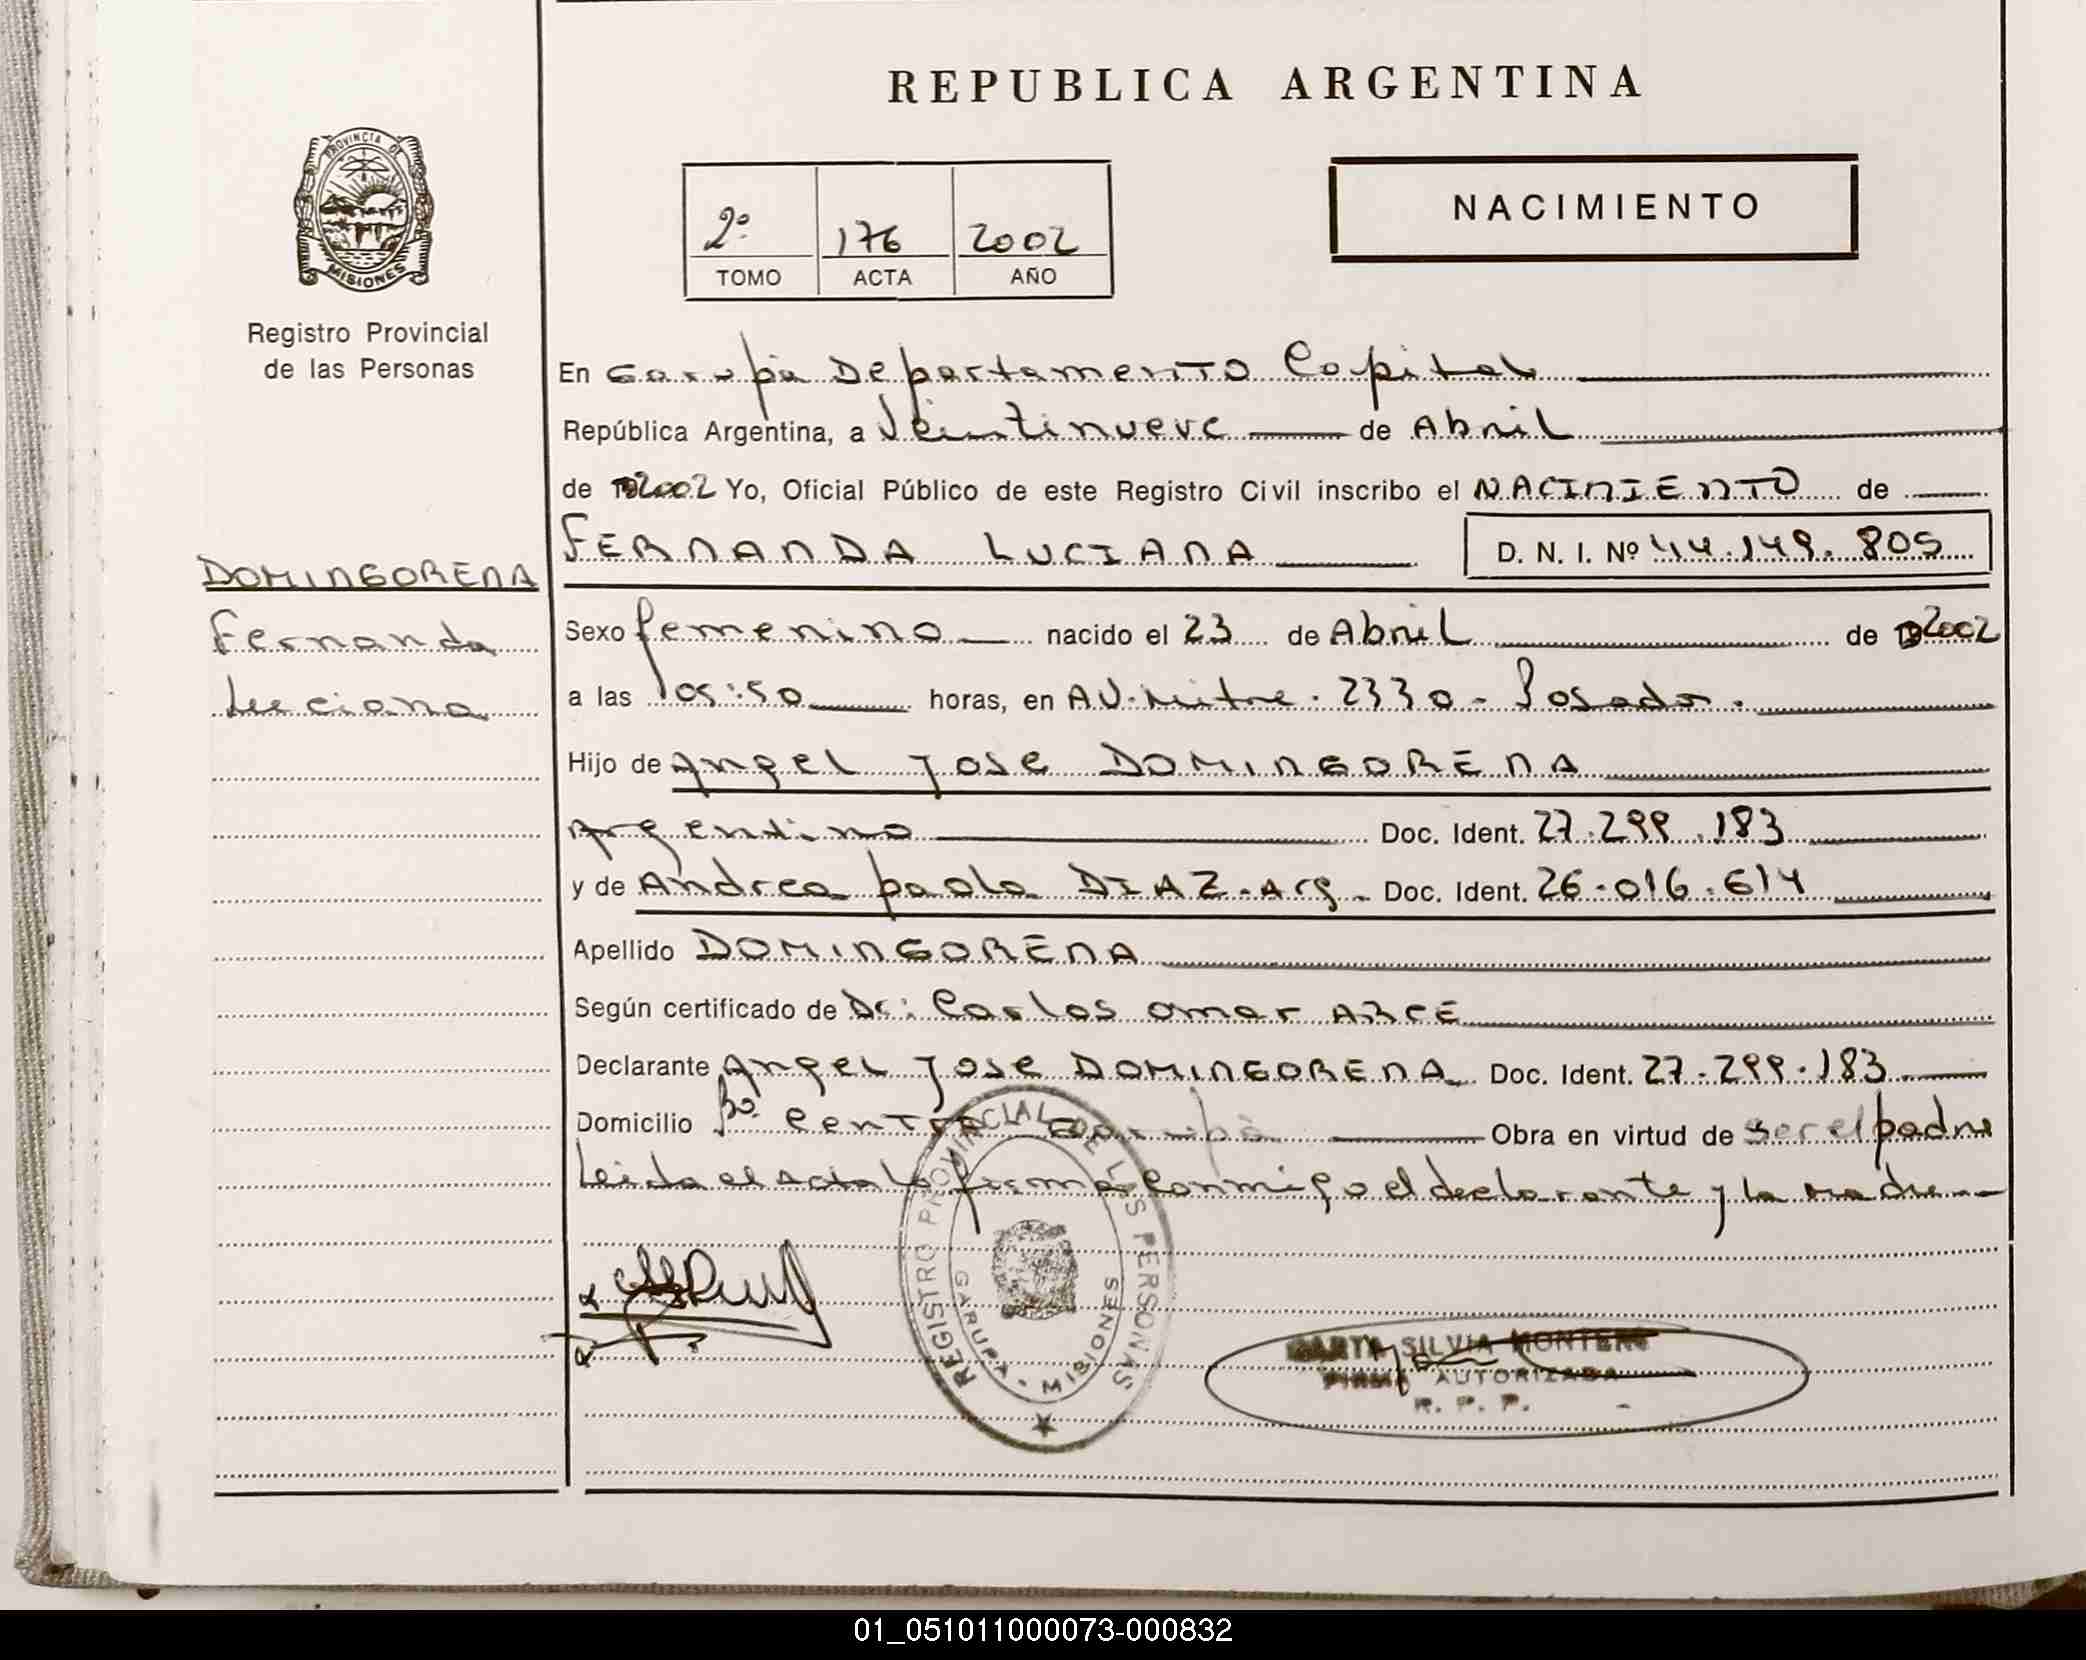 REPUBLICA ARGENTINA
PROVINCIA DE
MISIONES
Registro Provincial
de las Personas
2º 176 2002
TOMO ACTA AÑO
NACIMIENTO
En Garupá Departamento Capital
República Argentina, a Veintinueve de Abril
de 2002 Yo, Oficial Público de este Registro Civil inscribo el NACIMIENTO de
FERNANDA LUCIANA D. N. I. Nº 44.149.805
DOMINGORENA
Fernanda
Luciana
Sexo femenino nacido el 23 de Abril de 2002
a las 05:50 horas, en AV. Mitre. 2330 - Posadas.
Hijo de Angel Jose DOMINGORENA
Argentino Doc. Ident. 27.299.183
y de Andrea paola DIAZ - Arg - Doc. Ident. 26.016.614
Apellido DOMINGORENA
Según certificado de Dr: Carlos Omar ARCE
Declarante Angel Jose DOMINGORENA Doc. Ident. 27.299.183
Domicilio Bº Centro Garupá Obra en virtud de ser el padre
Leida el acta la firma conmigo el declarante y la madre
REGISTRO PROVINCIAL DE LAS PERSONAS
GARUPA - MISIONES
SILVIA MONTERO
FIRMA AUTORIZADA
R. P. P.
01_051011000073-000832